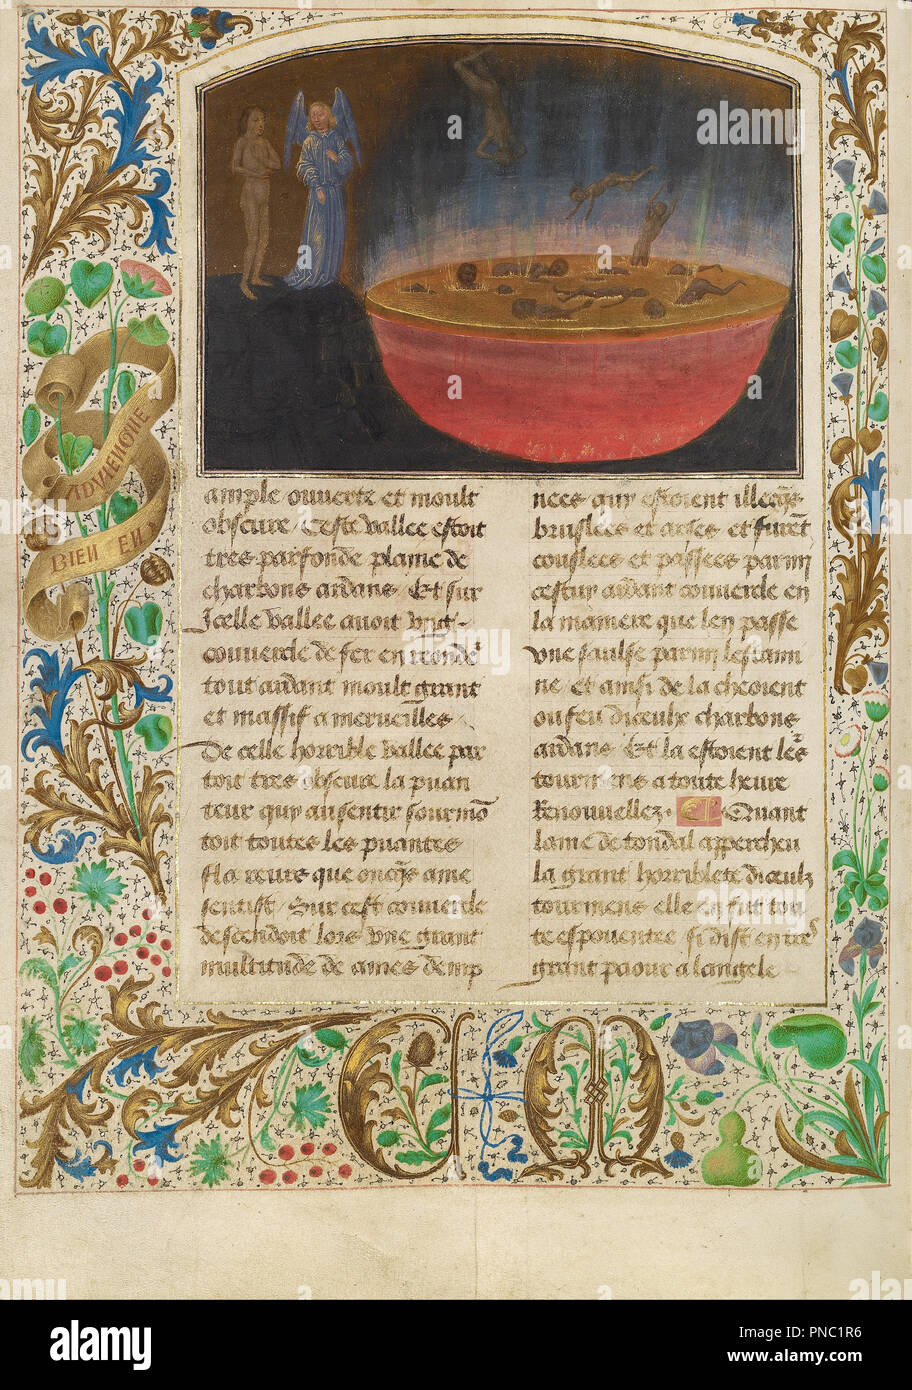 ADVIENGNE
BIEN EN
ample ouverte et moult
obscure / Ceste vallee estoit
tres parfonde plaine de
charbons ardans / Et sur
Icelle vallee avoit vng
couvercle de fer en
tout ardant moult grant
et massif a merveilles
De celle horrible vallee par
toit tres obscure la puan
teur quy au sentir
toit toutes les puantes
flaireurs que oncqs ame
sentist / Sur cest couvercle
descendoit lors vne grant
multitude de ames demp
nees quy estoient illecqs
bruslees et arses et furēt
coulees et passees parmy
cestui ardant couvercle en
la maniere que len passe
vne saulse parmi lestami
ne / et ainsi de la cheoient
ou feu diceulx charbons
ardans Et la estoient les
tourmens a toute heure
Renouvellez · Quant
lame de tondal appercheu
la grant horriblete diceulz
tourmens elle en fut tou
te espouentee si dist en
grant paour a langele
CM
a
alamy
Image ID: PNC1R6
www.alamy.com